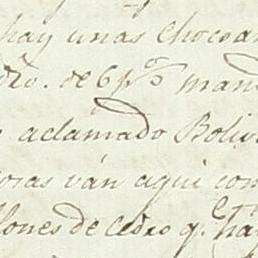 hay unas chocoa
dro. de 6 p.os man
aclamado Boliv
oras ván aqui con
llones de cedro q.e ha